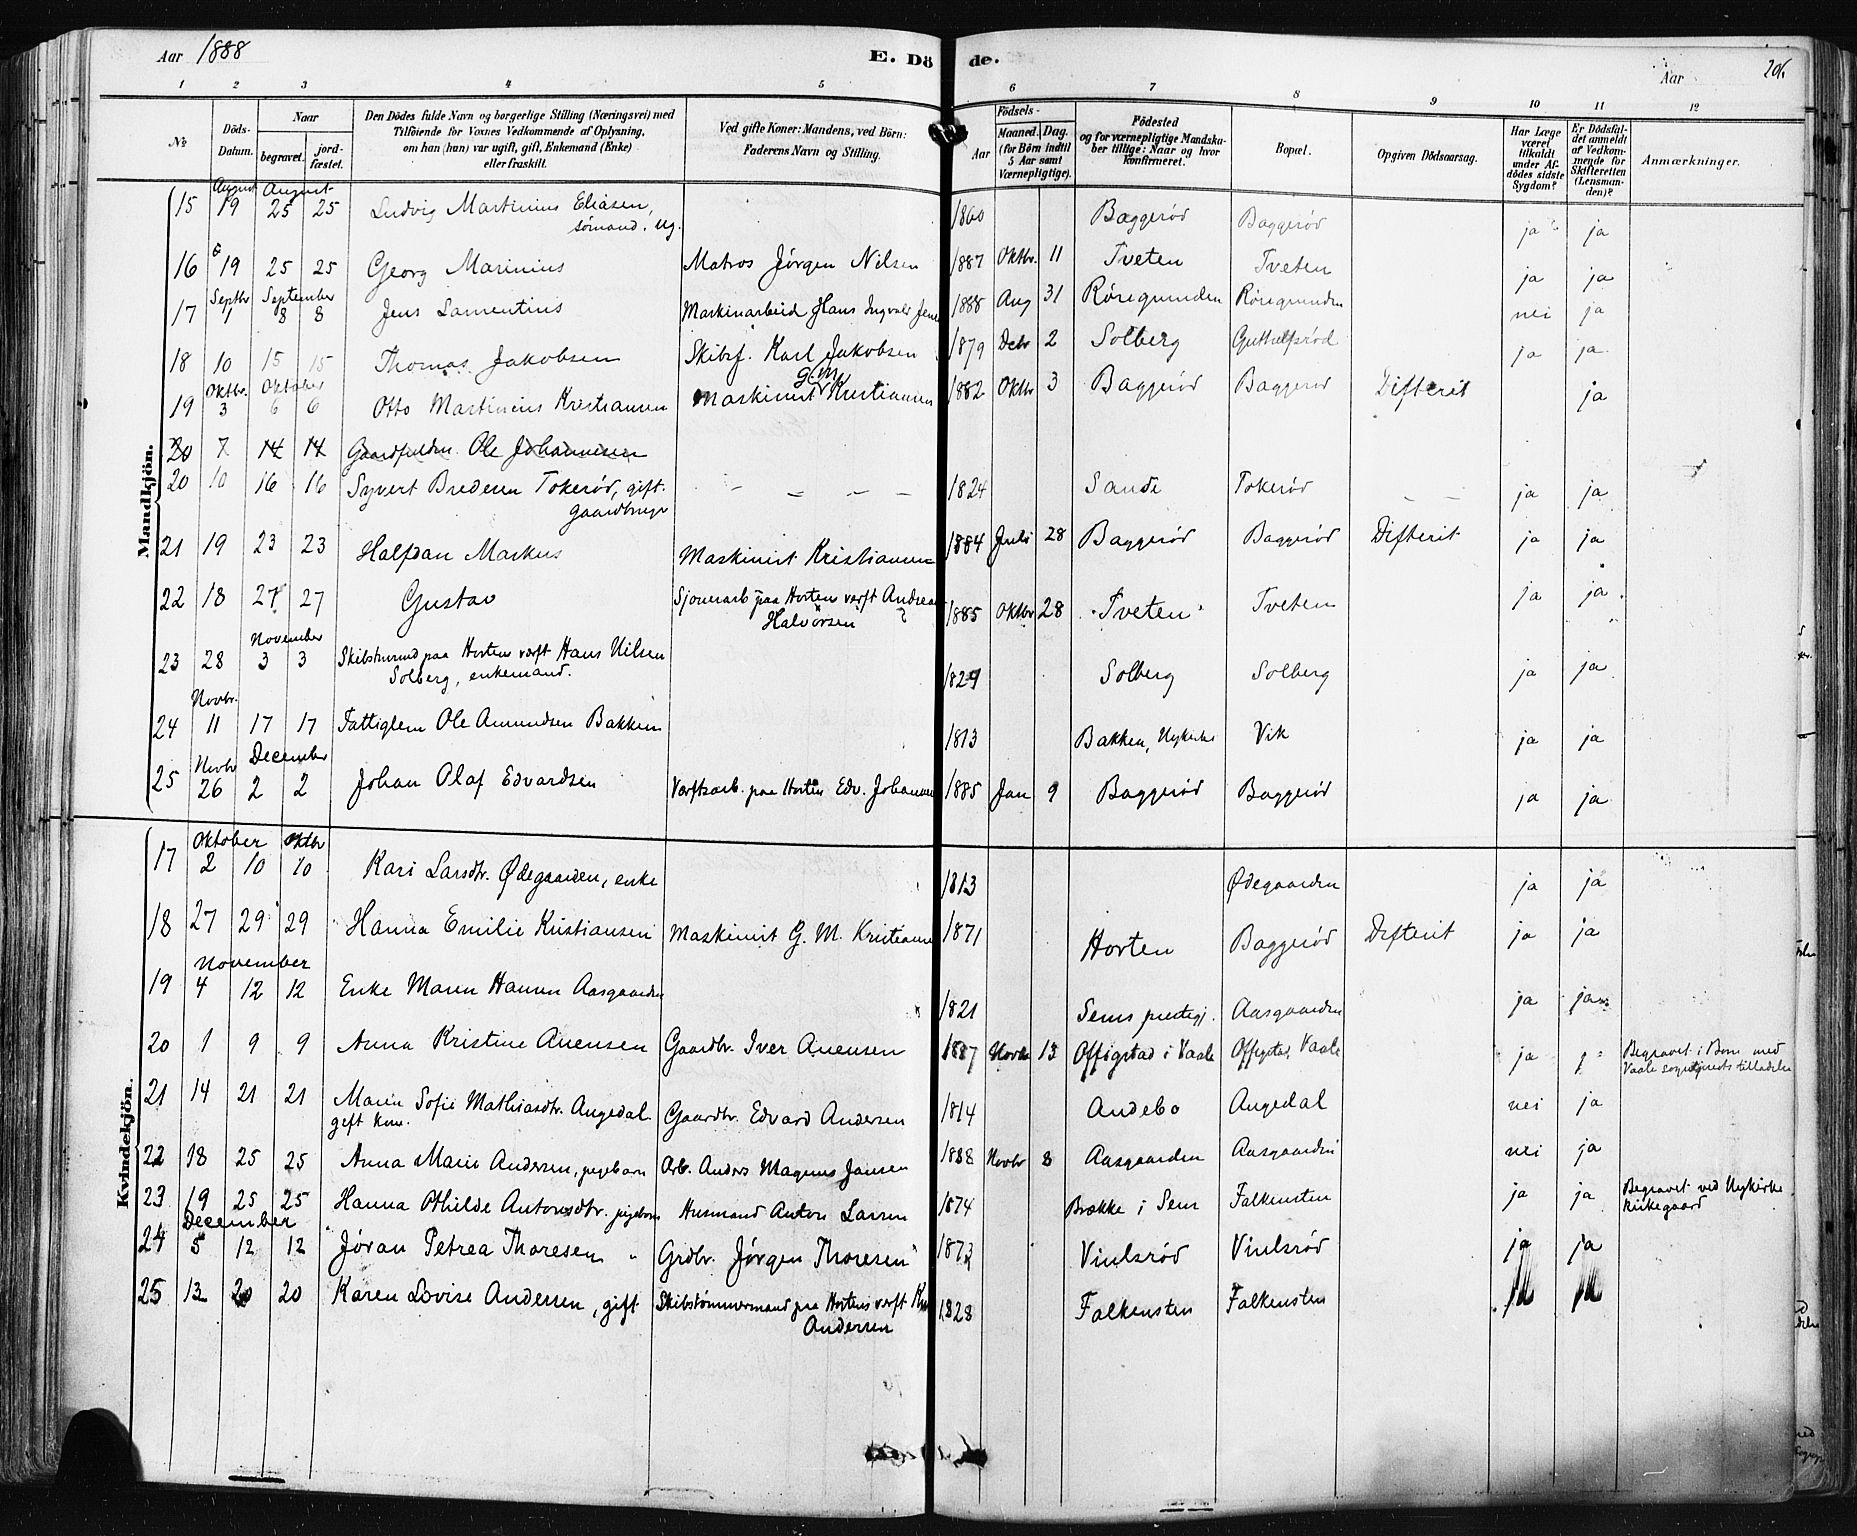 Aar 1888
E. Dö de.
Aar
206.
1 2 3 4 5 6 7 8 9 10 11 12
No
Döds-Datum.
Naar
begravet.
jord-fæstet.
Den Dödes fulde Navn og borgerlige Stilling (Næringsvei) med
Tilföiende for Voxnes Vedkommende af Oplysning,
om han (hun) var ugift, gift, Enkemand (Enke)
eller fraskilt.
Ved gifte Koner: Mandens, ved Börn:
Faderens Navn og Stilling.
Födsels-
Aar
Maaned. Dag.
(for Börn indtil
5 Aar samt
Værnepligtige).
Födested
og for værnepligtige Mandska-
ber tillige: Naar og hvor
konfirmeret.
Bopæl.
Opgiven Dödsaarsag.
Har Læge
været
tilkaldt
under Af-
dödes sidste
Sygdom?
Er Dödsfal-
det anmeldt
af Vedkom-
mende for
Skifteretten
(Lensman-
den)?
Anmærkninger.
Mandkjön.
August August
15 19 25 25 Ludvig Martinius Eliasen, 1860 Baggerød Baggerød ja ja
sømand, ug.
16 19 25 25 Georg Marinius Matros Jørgen Nilsen 1887 Oktbr. 11 Tveten Tveten ja ja
Septbr September
17 1 8 8 Jens Laurentius Maskinarbeid Hans Ingvald 1888 Aug 31 Røregrunden Røregrunden nei ja
18 10 15 15 Thomas Jakobsen Skibsf. Karl Jakobsen 1879 Debr 2 Solberg ja ja
Oktbr. Oktober G. M.
19 3 6 6 Otto Martinius Kristiansen Maskinist Kristiansen 1882 Oktbr 3 Baggerød Baggerød Difterit ja
20 7 14 14 Ole Johannesen
20 10 16 16 Syvert Bredesen Tokerød, gift. - - - - 1824 Sande Tokerød - - ja ja
gaardbruger
21 19 23 23 Halfdan Markus Maskinist Kristiansen 1884 Juli 28 Baggerød Baggerød Difterit ja ja
22 18 27 27 Gustav paa Horten verft Andreas 1885 Oktbr 28 Tveten Tveten ja ja
Halvorsen
November
23 28 3 3 paa Hortens verft Hans Nilsen 1829 Solberg Solberg ja ja
Solberg, enkemand.
Novbr.
24 11 17 17 Fattiglem Ole Amundsen Bakken 1813 Bakken, Nykirke Vik ja ja
Novbr December
25 26 2 2 Johan Olaf Edvardsen Værftsarb. paa Horten Edv. Johannesen 1885 Jan 9 Baggerød Baggerød ja ja
Kvindekjön.
Oktober Oktbr
17 2 10 10 Kari Larsdtr. Ødegaarden, enke 1813 Ødegaarden ja ja
18 27 29 29 Hanna Emilie Kristiansen Maskinist G. M. Kristiansen 1871 Horten Baggerød Difterit ja ja
November
19 4 12 12 Enke Maren Hansen Aasgaarden 1821 Sems prestegj. Aasgaarden ja ja
20 1 9 9 Anna Kristine Anensen Gaardbr. Iver Anensen 1887 Novbr 13 Offigstad i Vaale Offigstad, Vaale ja Begravet i Borre med
Vaale sogneprests tilladelse
21 14 21 21 Maren Sofie Mathiasdtr. Angedal Gaardbr. Edvard Andersen 1814 Andebo Angedal nei ja
gift kone.
22 18 25 25 Anna Marie Andersen, pigebarn Arb. Anders Magnus Jansen 1888 Novbr 8 Aasgaarden Aasgaarden nei ja
23 19 25 25 Hanna Othilde Antonsdtr. pigebarn Husmand Anton Larsen 1874 Brække i Sem Falkensten ja ja Begravet ved Nykirke
Kirkegaard
December
24 5 12 12 Jøran Petrea Thoresen " Grdbr. Jørgen Thoresen 1873 Viulsrød Viulsrød ja ja
25 13 20 20 Karen Lovise Andersen, gift Skibstømmermand paa Hortens verft 1828 Falkensten Falkensten ja ja
Andersen